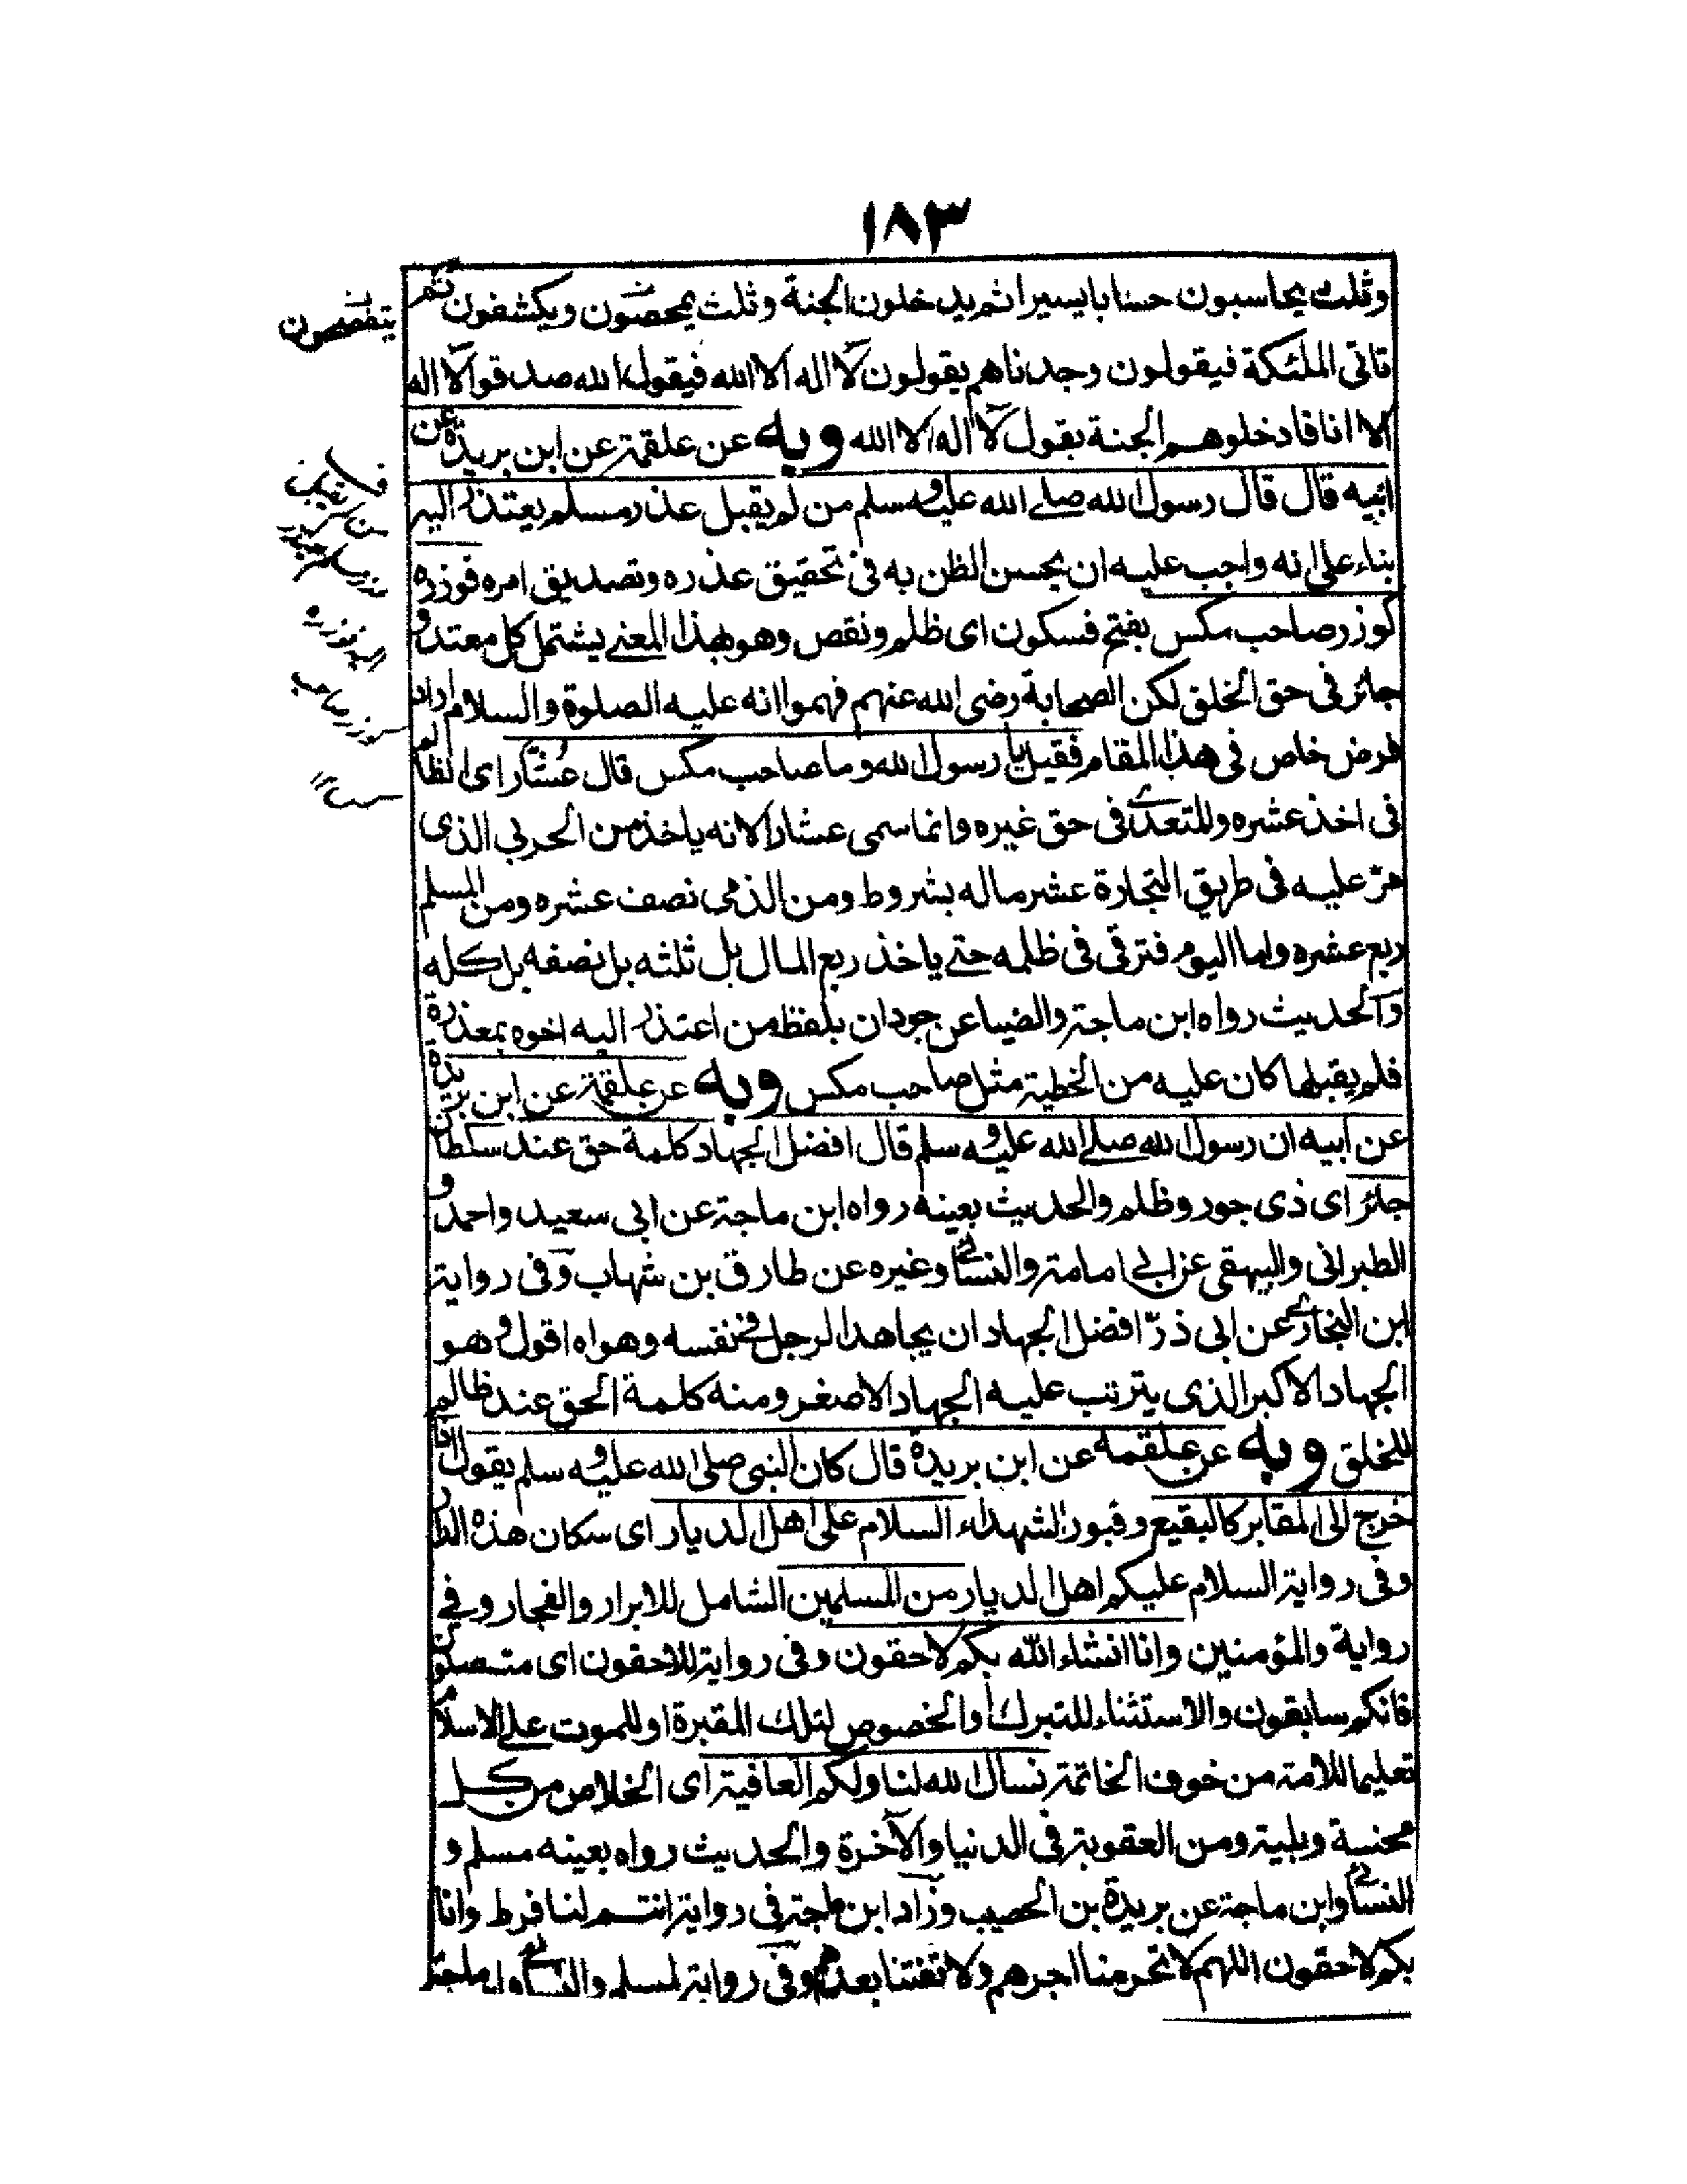 ١٨٣
وثلث يحاسبون حسابا يسيرا ثم يدخلون الجنة وثلث يمحصون ويكشفون ثم
تاتى الملئكة فيقولون وجدناهم يقولون لا اله الا الله فيقول الله صدقوا لا اله
الا انا فادخلوهم الجنة بقول لا اله الا الله وبه عن علقمة عن ابن بريدة عن
ابيه قال قال رسول الله صلى الله عليه وسلم من لم يقبل عذر مسلم يعتذر اليه
بناء على انه واجب عليه ان يحسن الظن به فى تحقيق عذره وتصديق امره فوزره
كوزر صاحب مكس بفتح فسكون اى ظلم ونقص وهو بهذا المعنى يشتمل كل معتد و
جائز فى حق الخلق لكن الصحابة رضى الله عنهم فهموا انه عليه الصلوة والسلام اراد
فرض خاص فى هذا المقام فقيل يا رسول الله وما صاحب مكس قال عشار اى الظالم
فى اخذ عشره وللتعدى فى حق غيره وانما سمى عشارا لانه ياخذ من الحربى الذى
مر عليه فى طريق التجارة عشر ماله بشروط ومن الذمى نصف عشره ومن المسلم
ربع عشره واما اليوم فترقى فى ظلمه حتى ياخذ ربع المال بل ثلثه بل نصفه بل كله
والحديث رواه ابن ماجة والضيا عن جودان بلفظ من اعتذر اليه اخوه بمعذرة
فلم يقبلها كان عليه من الخطية مثل صاحب مكس وبه عن علقمة عن ابن بريدة
عن ابيه ان رسول الله صلى الله عليه وسلم قال افضل الجهاد كلمة حق عند سلطان
جائر اى ذى جور وظلم والحديث بعينه رواه ابن ماجة عن ابى سعيد واحمد و
الطبرانى والبيهقى عن ابى امامة والنسائى وغيره عن طارق بن شهاب وفى رواية
ابن النجار عن ابى ذر افضل الجهاد ان يجاهد الرجل فى نفسه وهواه اقول وهو
الجهاد الاكبر الذى يترتب عليه الجهاد الاصغر ومنه كلمة الحق عند ظالم
للخلق وبه عن علقمه عن ابن بريدة قال كان النبى صلى الله عليه وسلم يقول اذا
خرج الى المقابر كالبقيع وقبور الشهداء السلام على اهل الديار اى سكان هذه الدار
وفى رواية السلام عليكم اهل الديار من المسلمين الشامل للابرار والفجار وفى
رواية والمؤمنين وانا انشاء الله بكم لاحقون وفى رواية للاحقون اى متصلون
فانكم سابقون والاستثناء للتبرك او الخصوص لتلك المقبرة او للموت على الاسلام
تعليما للامة من خوف الخاتمة نسال الله لنا ولكم العافية اى الخلاص من كل
محنسة وبلية ومن العقوبة فى الدنيا والآخرة والحديث رواه بعينه مسلم و
النسائى وابن ماجة عن بريدة بن الحصيب وزاد ابن ماجة فى رواية انتم لنا فرط وانا
بكم لاحقون اللهم لا تحرمنا اجرهم ولا تفتنا بعدهم وفى رواية لمسلم والنسائى وابن ماجة